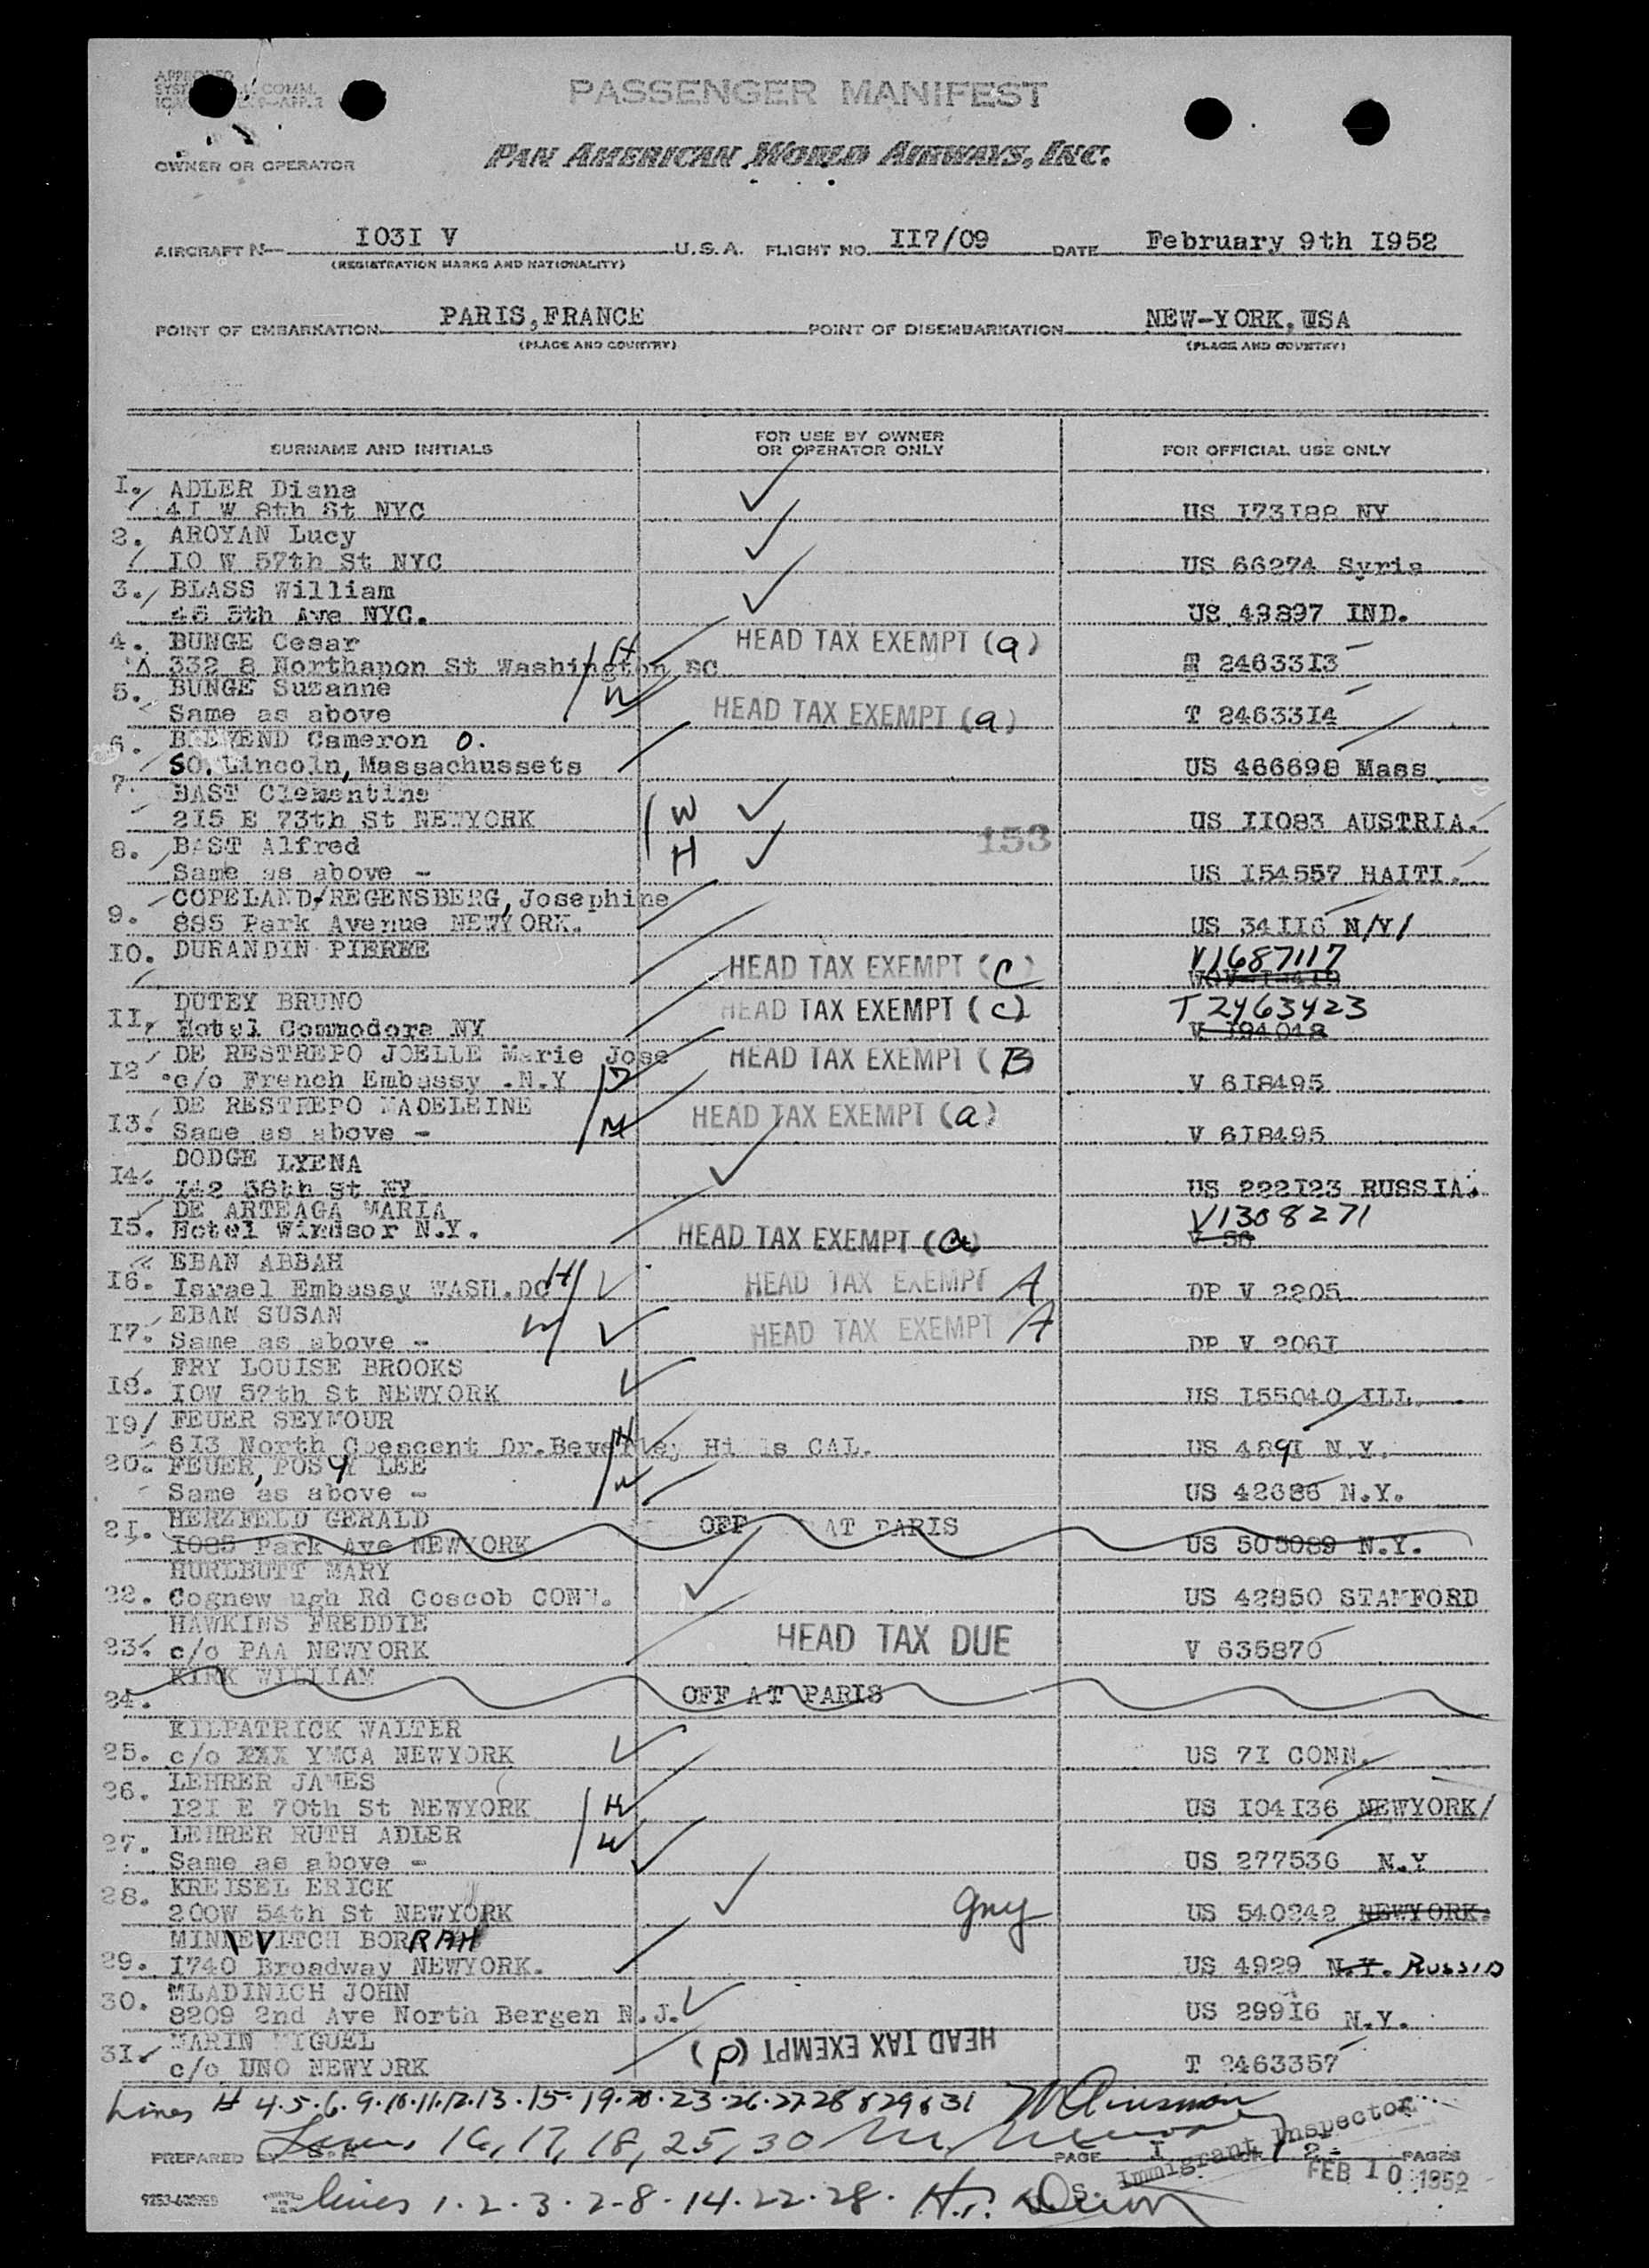 APPROVED
PASSENGER MANIFEST
OWNER OR OPERATOR
PAN AMERICAN WORLD AIRWAYS, INC.
AIRCRAFT N— I03I V U.S.A. FLIGHT NO. II7/09 DATE February 9th I952
(REGISTRATION MARKS AND NATIONALITY)
POINT OF EMBARKATION PARIS,FRANCE POINT OF DISEMBARKATION NEW-YORK,USA
(PLACE AND COUNTRY) (PLACE AND COUNTRY)
SURNAME AND INITIALS FOR USE BY OWNER OR OPERATOR ONLY FOR OFFICIAL USE ONLY
I. ADLER Diana
4I W 8th St NYC US I73I88 NY
2. AROYAN Lucy
I0 W 57th St NYC US 66274 Syria
3. BLASS William
5th Ave NYC. US 49897 IND.
4. BUNGE Cesar H HEAD TAX EXEMPT (a)
332 8 Northanon St Washington DC T 24633I3
5. BUNGE Suzanne W HEAD TAX EXEMPT (a)
Same as above T 24633I4
6. Cameron O.
SO. Lincoln, Massachussets US 466698 Mass
7. BAST Clementine W
2I5 E 73th St NEWYORK US II083 AUSTRIA.
153
8. BAST Alfred H
Same as above - US I54557 HAITI.
COPELAND/REGENSBERG, Josephine
9. 885 Park Avenue NEWYORK. US 34II6 N/Y/
I0. DURANDIN PIERRE HEAD TAX EXEMPT (C) V1687117
DUTEY BRUNO HEAD TAX EXEMPT (C) T 2463423
II. Hotel Commodore NY V I94048
DE RESTREPO JOELLE Marie Jose HEAD TAX EXEMPT (B
I2 c/o French Embassy .N.Y D V 6I8495
DE RESTREPO MADELEINE HEAD TAX EXEMPT (a)
I3. Same as above - M V 6I8495
DODGE LYENA
I4. I42 38th St NY US 222I23 RUSSIA.
DE ARTEAGA MARIA V1308271
I5. Hotel Windsor N.Y. HEAD TAX EXEMPT (a) V 56
EBAN ABBAH
I6. Israel Embassy WASH.DC H HEAD TAX EXEMPT A DP V 2205
EBAN SUSAN
I7. Same as above - W HEAD TAX EXEMPT A DP V 206I
FRY LOUISE BROOKS
I8. I0W 57th St NEWYORK US I55040 ILL.
I9/ FEUER SEYMOUR H
6I3 North Crescent Dr.Beverley Hills CAL. US 4891 N.Y.
20. FEUER, POSY LEE W
Same as above - US 42686 N.Y.
2I. HERZFELD GERALD OFF AT PARIS
I085 Park Ave NEWYORK US 505089 N.Y.
HURLBUTT MARY
22. Cognew ugh Rd Coscob CONN. US 42850 STAMFORD
HAWKINS FREDDIE
23. c/o PAA NEWYORK HEAD TAX DUE V 635870
KIRK WILLIAM
24. OFF AT PARIS
KILPATRICK WALTER
25. c/o XXX YMCA NEWYORK US 7I CONN.
26. LEHRER JAMES
I2I E 70th St NEWYORK H US I04I36 NEWYORK/
27. LEHRER RUTH ADLER W
Same as above - US 277536 N.Y
28. KREISEL ERICK
200W 54th St NEWYORK US 540242 NEWYORK.
MINNEVITCH BORRAH
29. I740 Broadway NEWYORK. US 4929 N.Y. RUSSIA
30. MLADINICH JOHN
8209 2nd Ave North Bergen N.J. US 299I6 N.Y.
3I. MARIN MIGUEL HEAD TAX EXEMPT (d)
c/o UNO NEWYORK T 2463357
Lines # 4.5.6.9.10.11.12.13.15.19.20.23.26.27.28 & 29 & 31
Lines 16, 17, 18, 25, 30
PREPARED BY PAGE I OF 2 PAGES
Immigrant Inspector
FEB 10 1952
lines 1.2.3.7-8.14.22.28.